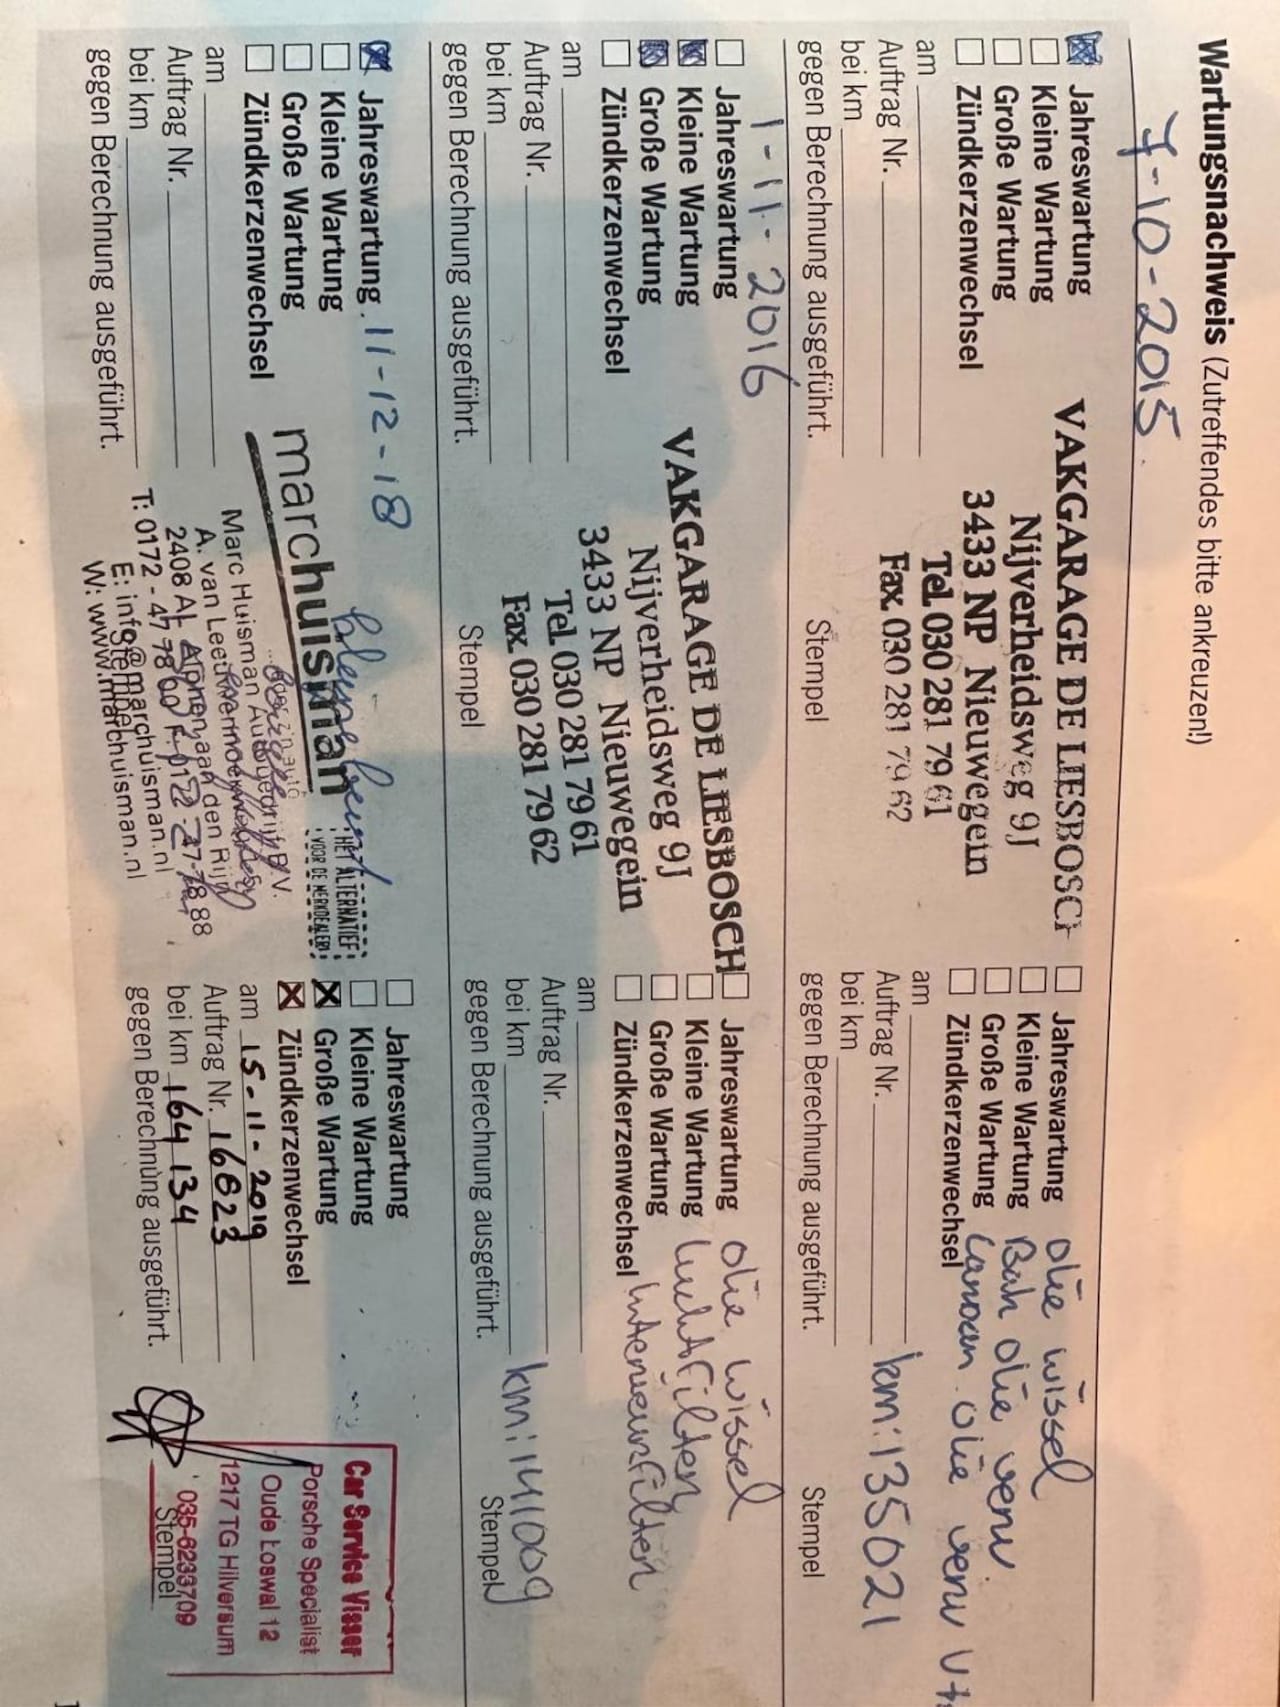 Wartungsnachweis (Zutreffendes bitte ankreuzen!)
7-10-2015.
Jahreswartung
Kleine Wartung
Große Wartung
Zündkerzenwechsel
am
Auftrag Nr.
bei km
gegen Berechnung ausgeführt.
VAKGARAGE DE LIESBOSCH
Nijverheidsweg 9J
3433 NP Nieuwegein
Tel. 030 281 79 61
Fax. 030 281 79 62
Stempel
Jahreswartung
Kleine Wartung
Große Wartung
Zündkerzenwechsel
olie wissel
Bak olie verv
olie verv
am
Auftrag Nr.
bei km
gegen Berechnung ausgeführt.
km: 135021
Stempel
1-11-2016
Jahreswartung
Kleine Wartung
Große Wartung
Zündkerzenwechsel
am
Auftrag Nr.
bei km
gegen Berechnung ausgeführt.
VAKGARAGE DE LIESBOSCH
Nijverheidsweg 9J
3433 NP Nieuwegein
Tel. 030 281 79 61
Fax. 030 281 79 62
Stempel
Jahreswartung
Kleine Wartung
Große Wartung
Zündkerzenwechsel
olie wissel
luchtfilter
Interieurfilter
am
Auftrag Nr.
bei km
gegen Berechnung ausgeführt.
km: 141009
Stempel
Jahreswartung
Kleine Wartung
Große Wartung
Zündkerzenwechsel
11-12-18
am
Auftrag Nr.
bei km
gegen Berechnung ausgeführt.
kleine beurt
marchuisman
HET ALTERNATIEF
VOOR DE MERKDEALER!
Marc Huisman Autobedrijf B.V.
A. van Leeuwenhoekweg
2408 AL Alphen aan den Rijn
T: 0172 - 47 78 00 F: 0172 - 47 78 88
E: info@marchuisman.nl
W: www.marchuisman.nl
Stempel
Jahreswartung
Kleine Wartung
Große Wartung
Zündkerzenwechsel
am 15-11-2019
Auftrag Nr. 16823
bei km 164134
gegen Berechnung ausgeführt.
Car Service Visser
Porsche Specialist
Oude Loswal 12
1217 TG Hilversum
035-6233709
Stempel